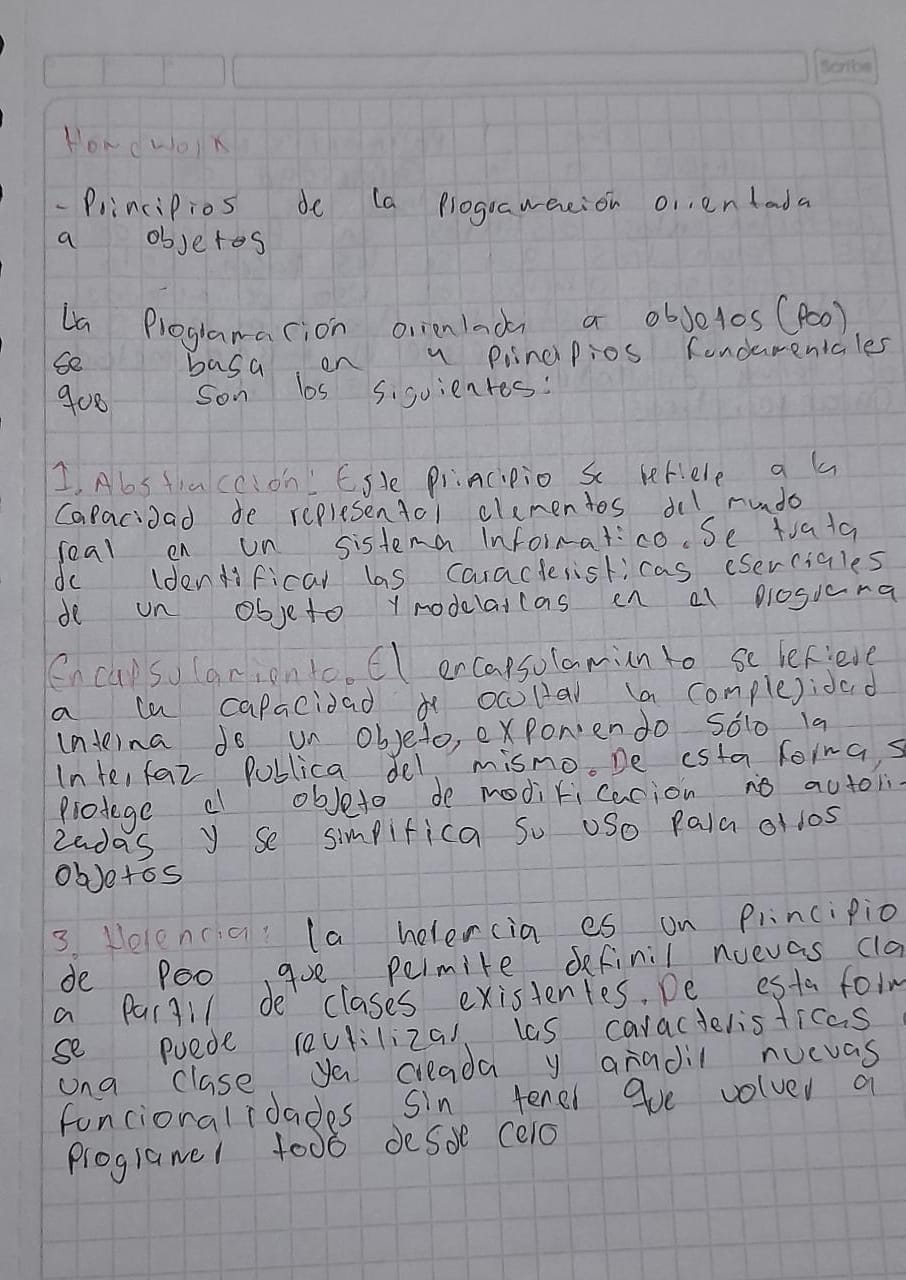 Scribe
Homework
- Principios de la Programación orientada
a objetos
La Programación orientada a objetos (POO)
se basa en 4 principios fundamentales
que son los siguientes:
1. Abstracción: Este principio se refiere a la
capacidad de representar elementos del mundo
real en un sistema informatico. Se trata
de identificar las caracteristicas esenciales
de un objeto y modelarlas en el programa
Encapsulamiento. El encapsulamiento se refiere
a la capacidad de ocultar la complejidad
interna de un objeto, exponiendo sólo la
interfaz publica del mismo. De esta forma, s
protege el objeto de modificación no autori-
zadas y se simplifica su uso para otros
objetos
3. Herencia: la herencia es un principio
de POO que permite definir nuevas cla
a partir de clases existentes. De esta form
se puede reutilizar las caracteristicas
una clase ya creada y añadir nuevas
funcionalidades sin tener que volver a
programer todo desde cero